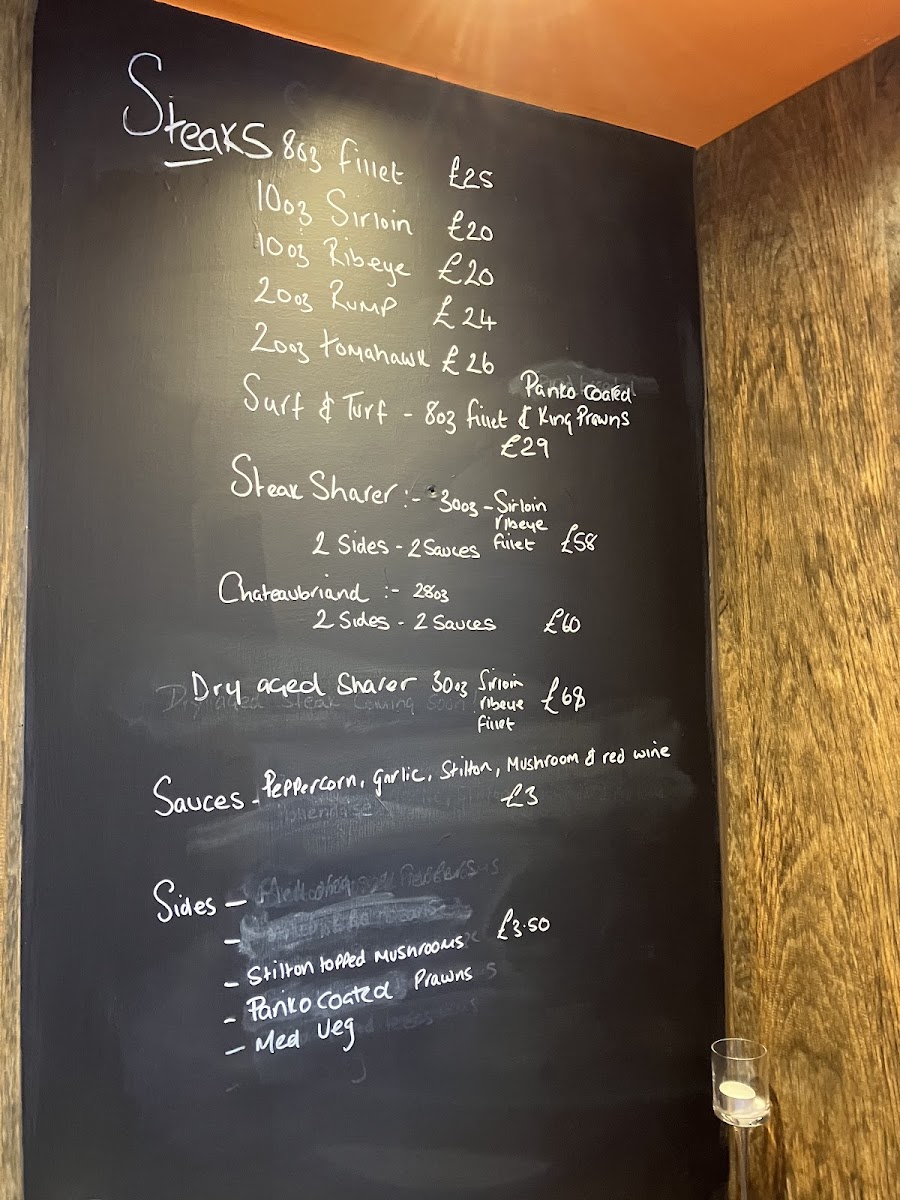 Steaks 8oz fillet £25
10oz Sirloin £20
10oz Ribeye £20
20oz Rump £24
20oz tomahawk £26
Surf & Turf - 8oz fillet & King Prawns
Panko coated
£29
Steak Sharer :- 30oz - Sirloin
ribeye
fillet £58
2 Sides - 2 Sauces
Chateaubriand :- 28oz
2 Sides - 2 Sauces £60
Dry aged Sharer 30oz Sirloin
ribeye
fillet £68
Dry aged Steak Coming Soon
Sauces - Peppercorn, garlic, Stilton, Mushroom & red wine
£3
Sides -
-
- Stilton topped mushrooms £3.50
- Panko coated Prawns
- Med Veg